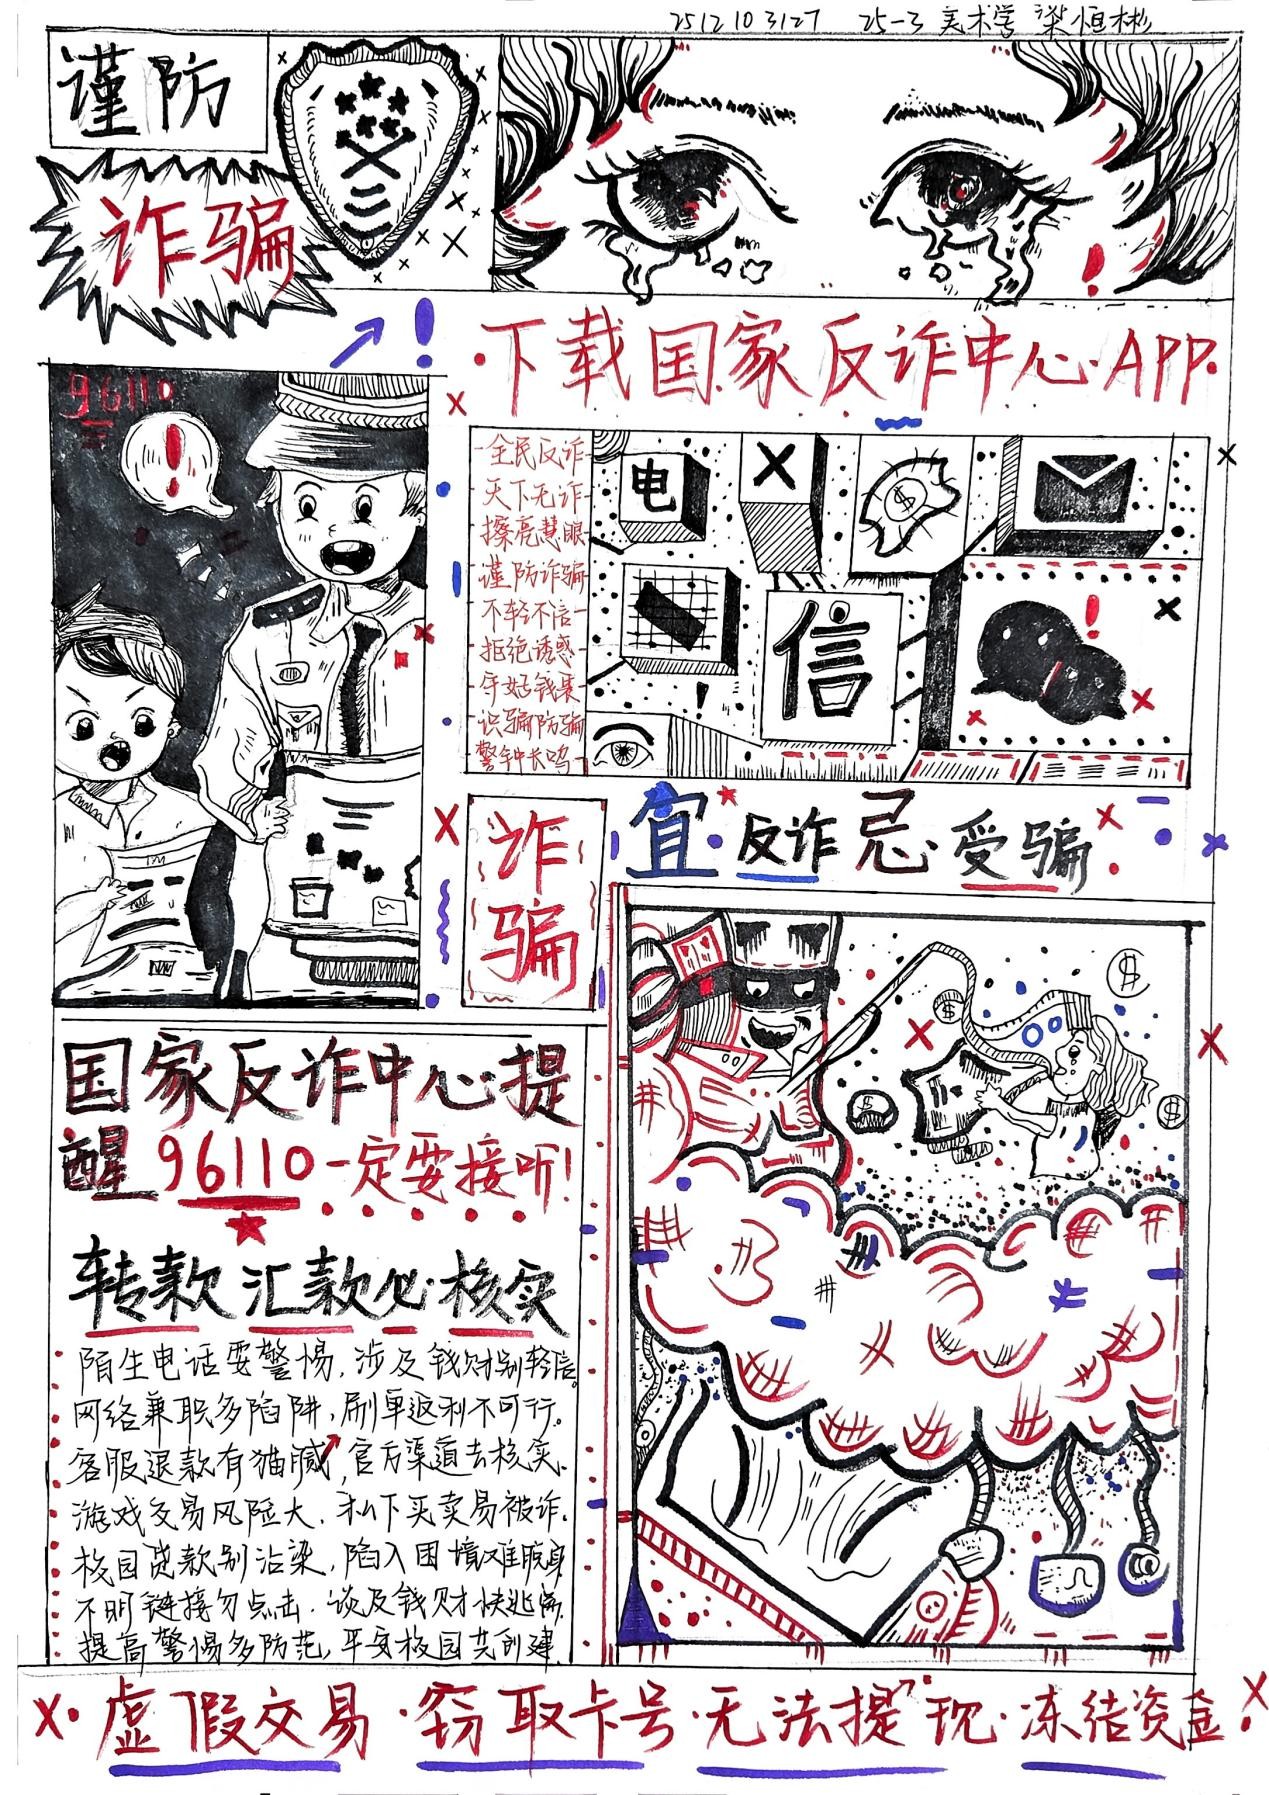 2512103127 25-3 美术学 梁恒彬
谨防
诈骗
下载国家反诈中心APP
96110
全民反诈
天下无诈
擦亮慧眼
谨防诈骗
不轻不信
拒绝诱惑
守好钱
识骗防骗
警钟长鸣
电
信
诈
骗
宜·反诈 忌·受骗
国家反诈中心提
醒96110一定要接听!
转款汇款必核实
陌生电话要警惕,涉及钱财别轻信。
网络兼职多陷阱,刷单返利不可行。
客服退款有猫腻,官方渠道去核实.
游戏交易风险大.私下买卖易被诈.
校园贷款别沾染,陷入困境难脱身
不明链接勿点击.谈及钱财快逃离.
提高警惕多防范,平安校园共创建
虚假交易·窃取卡号·无法提现·冻结资金